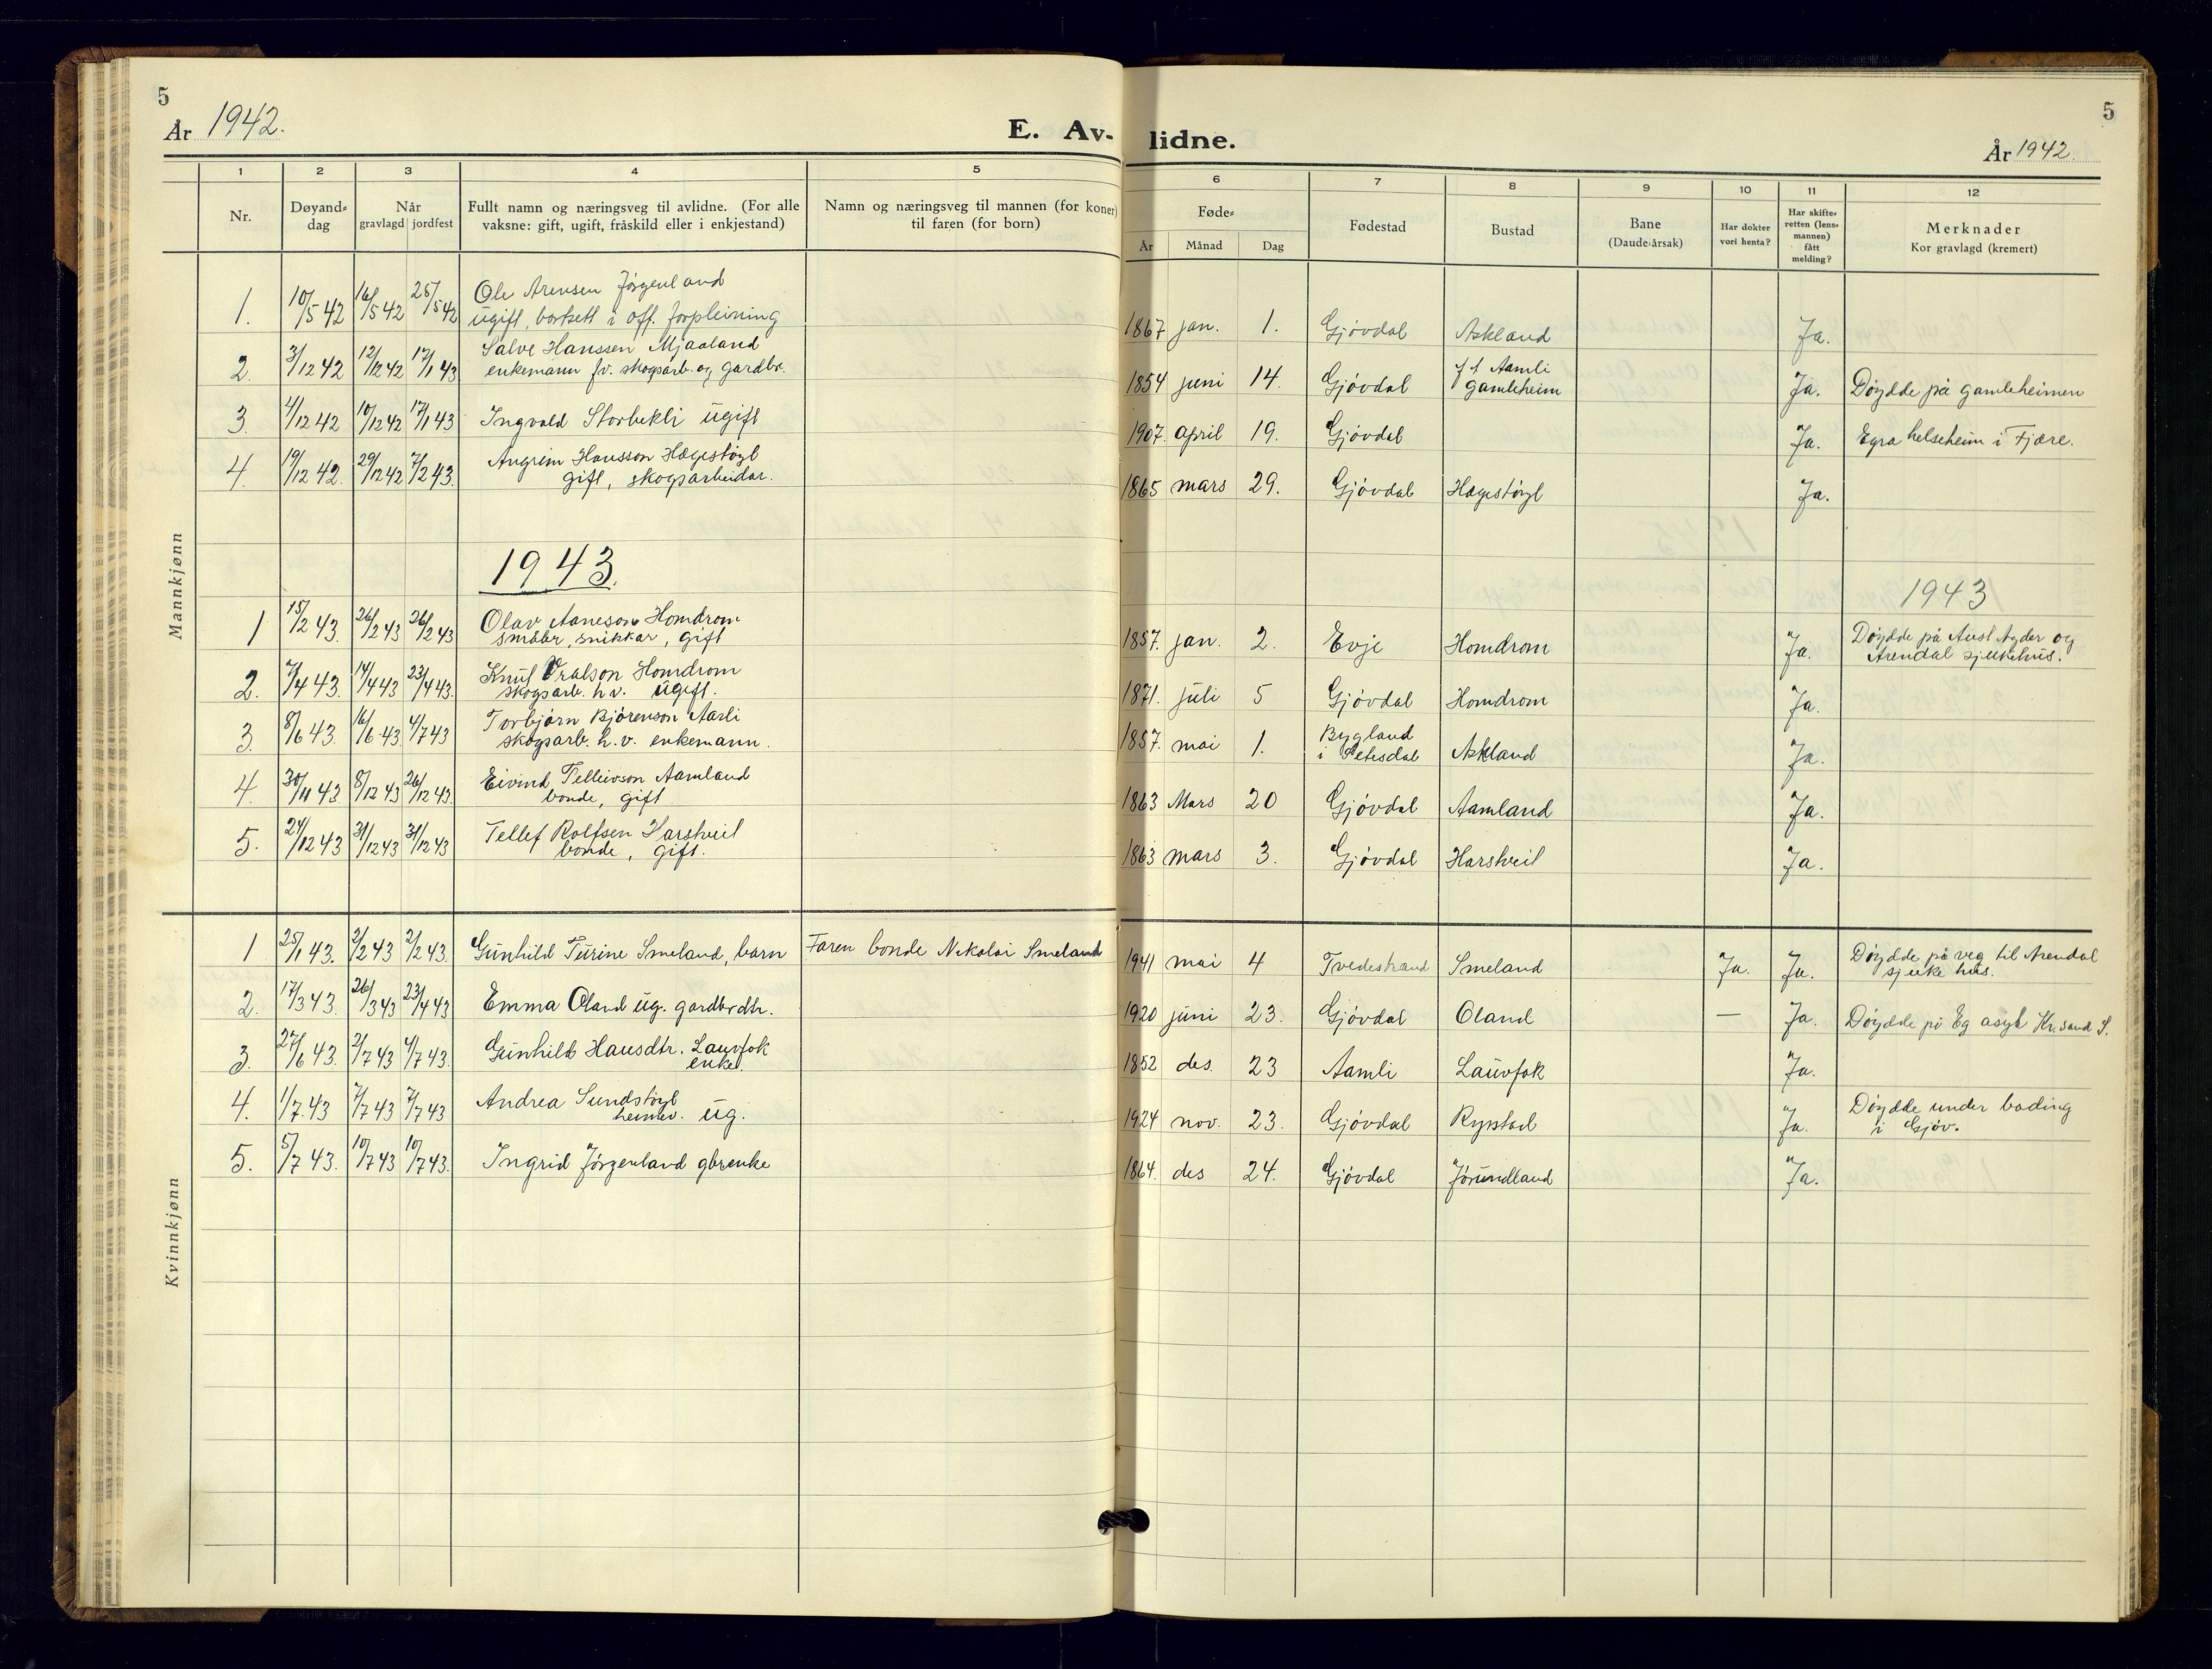 5
År 1942.
E. Av-
1
2
3
4
5
Nr.
Døyand-
dag
Når
gravlagd jordfest
Fullt namn og næringsveg til avlidne. (For alle
vaksne: gift, ugift, fråskild eller i enkjestand)
Namn og næringsveg til mannen (for koner)
til faren (for born)
Mannkjønn
1. 10/5 42 16/5 42 25/5 42 Ole Arensen Jørgenland
ugift, bortsett i off. forpleining
2. 3/12 42 12/12 42 17/1 43 Salve Hanssen Mjaaland
enkemann fv. skogsarb. og gardbr.
3. 4/12 42 10/12 42 17/1 43 Ingvald Storbekli ugift
4. 19/12 42. 29/12 42 7/2 43. Angrim Hansson Hægestøyl
gift, skogsarbeidar.
1943.
1 15/2 43. 26/2 43 26/2 43 Olav Aaneson Homdrom
snikkar, gift
2. 7/4 43. 14/4 43 23/4 43. Knut Oralson Homdrom
skogsarb. h.v. ugift.
3. 8/6 43. 16/6 43. 4/7 43 Torbjørn Bjørenson Aasli
skogsarb. h.v. enkemann.
4. 30/11 43. 8/12 43 26/12 43. Eivind Telleivson Aamland
bonde, gift
5. 24/12 43 31/12 43 31/12 43 Tellef Rolfsen Harstveit
bonde, gift.
Kvinnkjønn
1 25/1 43. 2/2 43 2/2 43. Gunhild Turine Smeland, barn Faren bonde Nikolai Smeland
2. 17/3 43. 26/3 43 23/4 43 Emma Oland ug. gardbrdtr.
3. 27/6 43. 2/7 43 4/7 43. Gunhild Hansdtr. Lauvfok
enke.
4. 1/7 43 7/7 43 7/7 43 Andrea Sundstøyl
heimev. ug.
5. 5/7 43. 10/7 43 10/7 43. Ingrid Jørgenland gbrenke
lidne.
5
År 1942.
6
7
8
9
10
11
12
Føde-
År Månad Dag
Fødestad
Bustad
Bane
(Daude-årsak)
Har dokter
vori henta?
Har skifte-
retten (lens-
mannen)
fått
melding?
Merknader
Kor gravlagd (kremert)
1867 jan. 1. Gjøvdal Askland Ja.
1854 juni 14. Gjøvdal Aamli
gamleheim Ja. Døydde på gamleheimen
1907. april 19. Gjøvdal Ja. Egra helseheim i Fjære.
1865 mars 29. Gjøvdal Hægestøyl Ja.
1943
1857. jan. 2. Evje Homdrom Ja. Døydde på Aust Agder og
Arendal sjukehus.
1871. juli 5 Gjøvdal Homdrom Ja.
1857. mai 1. Bygland
i Setesdal Askland Ja.
1863 Mars 20 Gjøvdal Aamland Ja.
1863 mars 3. Gjøvdal Harstveit Ja.
1941 mai 4 Tvedestrand Smeland Ja. Ja. Døydde på veg til Arendal
sjuke hus.
1920 juni 23. Gjøvdal Oland — Ja. Døydde på Eg asyl Kr.sand S.
1852 des. 23 Aamli Lauvfok Ja.
1924 nov. 23. Gjøvdal Rypstad Ja. Døydde under bading
i Gjøv.
1864. des 24. Gjøvdal Jørundland Ja.